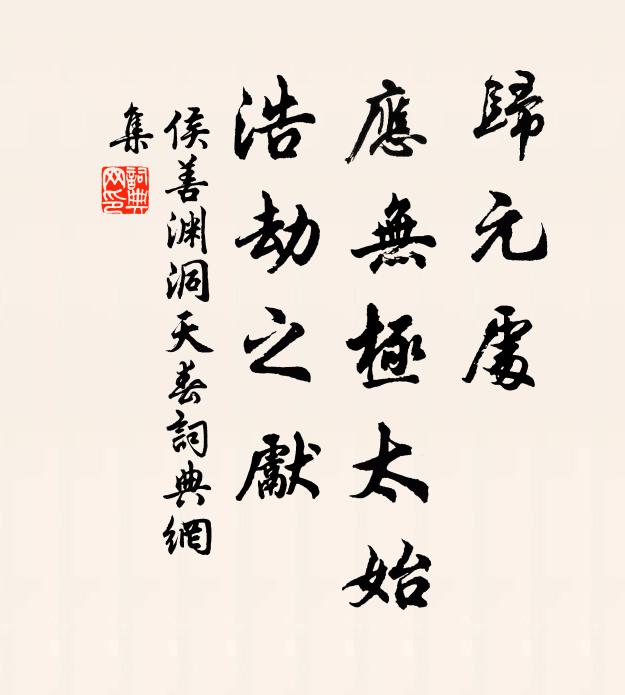 歸元處
應無極太始
浩劫之獻
侯善淵洞天春詞典網
集
詞典
网印